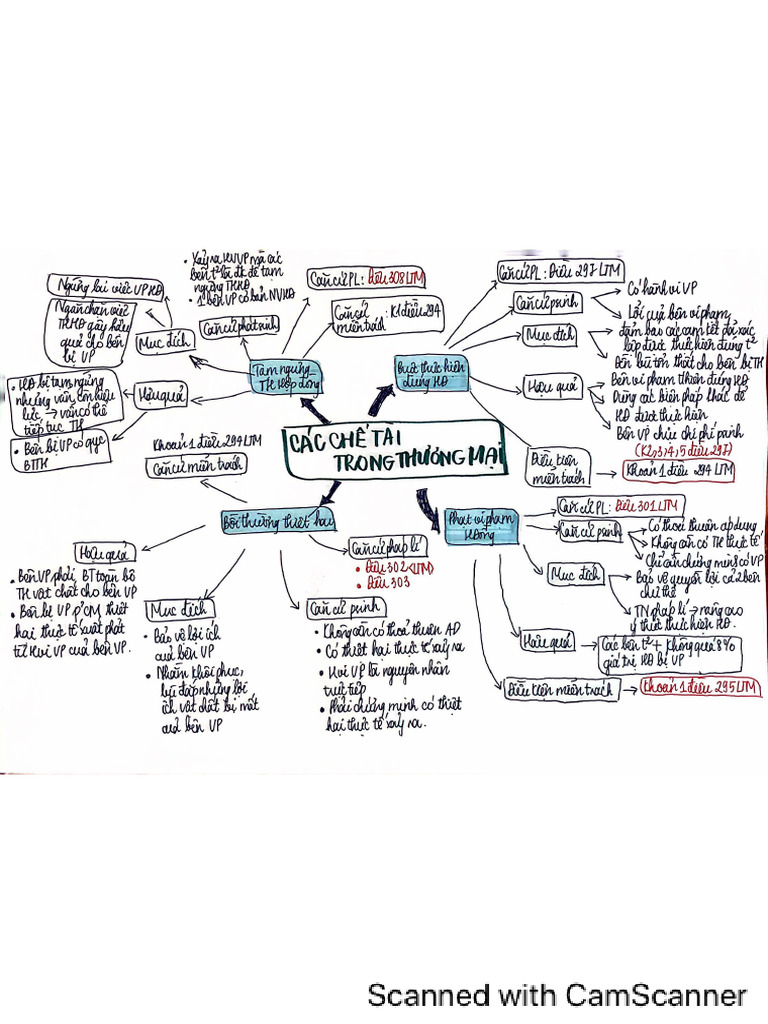 CÁC CHẾ TÀI
TRONG THƯƠNG MẠI
Tạm ngừng
TH Hợp đồng
Căn cứ PL: Điều 308 LTM
Căn cứ
miễn trách : K1 điều 294
Căn cứ phát sinh
• Xảy ra HVVP mà các
bên t² là đk để tạm
ngừng THHĐ
• 1 bên VP cơ bản NVHĐ
Mục đích
Ngừng lại việc VPHĐ
Ngăn chặn việc
THHĐ gây hậu
quả cho bên
bị VP
Hậu quả
• HĐ bị tạm ngừng
nhưng vẫn còn hiệu
lực → vẫn có thể
tiếp tục TH
• Bên bị VP có quyc
BTTH
Buộc thực hiện
đúng HĐ
Căn cứ PL: Điều 297 LTM
Căn cứ psinh
Có hành vi VP
Lỗi của bên vi phạm
Mục đích
đảm bảo các cam kết đã xác
lập được thực hiện đúng t²
Đền bù tổn thất cho bên bị TH
Hậu quả
Bên vi phạm T.hiện đúng HĐ
Dùng các biện pháp khác để
HĐ được thực hiện
Bên VP chịu chi phí psinh
(K2,3,4,5 điều 297)
Điều kiện
miễn trách
Khoản 1 điều 294 LTM
Bồi thường thiệt hại
Khoản 1 điều 294 LTM
Căn cứ miễn trách
Hậu quả
• Bên VP phải BT toàn bộ
TH vật chất cho bên VP
• Bên bị VP p'CM thiệt
hại thực tế xuất phát
từ Hvi VP của bên VP.
Mục đích
• Bảo vệ lợi ích
của bên VP
• Nhằm khôi phục,
bù đắp những lợi
ích vật chất bị mất
của bên VP
Căn cứ psinh
• Không cần có thoả thuận AD
• Có thiệt hại thực tế xảy ra
• Hvi VP là nguyên nhân
trực tiếp
• Phải chứng minh có thiệt
hại thực tế xảy ra.
Căn cứ pháp lí
• Điều 302 (LTM)
• Điều 303
Phạt vi phạm
Hđồng
Căn cứ PL: Điều 301 LTM
Căn cứ psinh
Có thoả thuận áp dụng
Không cần có TH thực tế
Chỉ cần chứng minh có VP
Mục đích
Bảo vệ quyền lợi cả 2 bên
chủ thể
TN pháp lí → nâng cao
ý thức thực hiện HĐ.
Hậu quả
Các bên t² + không quá 8%
giá trị HĐ bị VP
Điều kiện miễn trách
Khoản 1 điều 295 LTM
Scanned with CamScanner